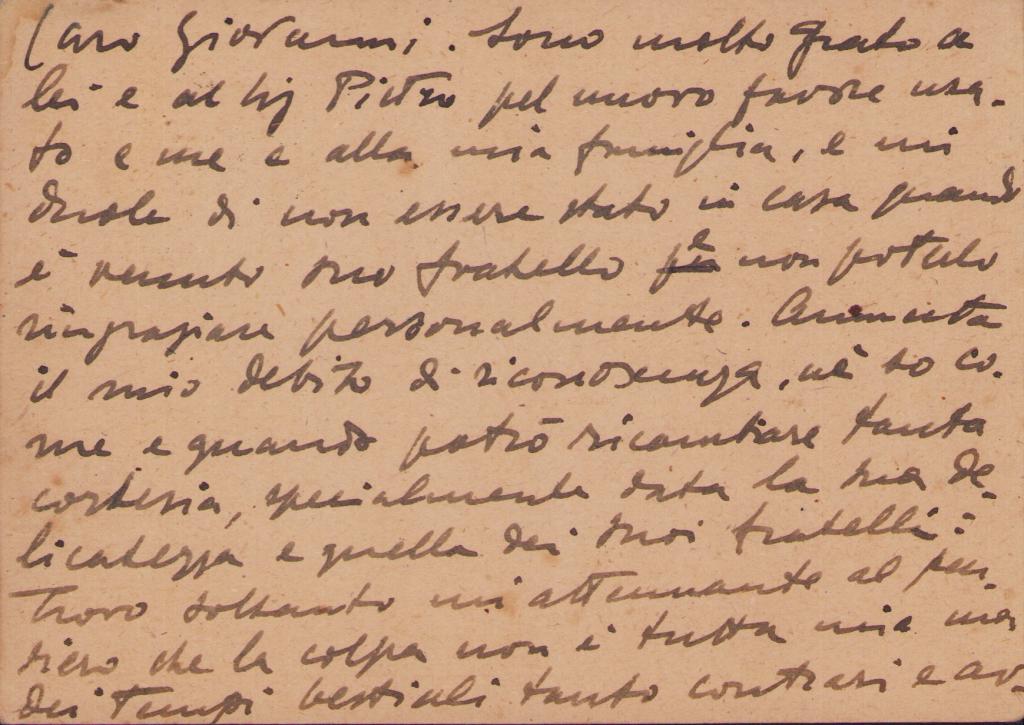 Caro Giovanni. Sono molto grato a
lei e al Sig Pietro pel nuovo favore usa-
to a me e alla mia famiglia, e mi
duole di non essere stato in casa quando
è venuto suo fratello e non poterlo
ringraziare personalmente. Aumenta
il mio debito di riconoscenza, nè so co-
me e quando potrò ricambiare tanta
cortesia, specialmente data la sua de-
licatezza e quella dei suoi fratelli:
Trovo soltanto un'attenuante al pen-
siero che la colpa non è tutta mia ma
dei tempi bestiali tanto contrari e av-